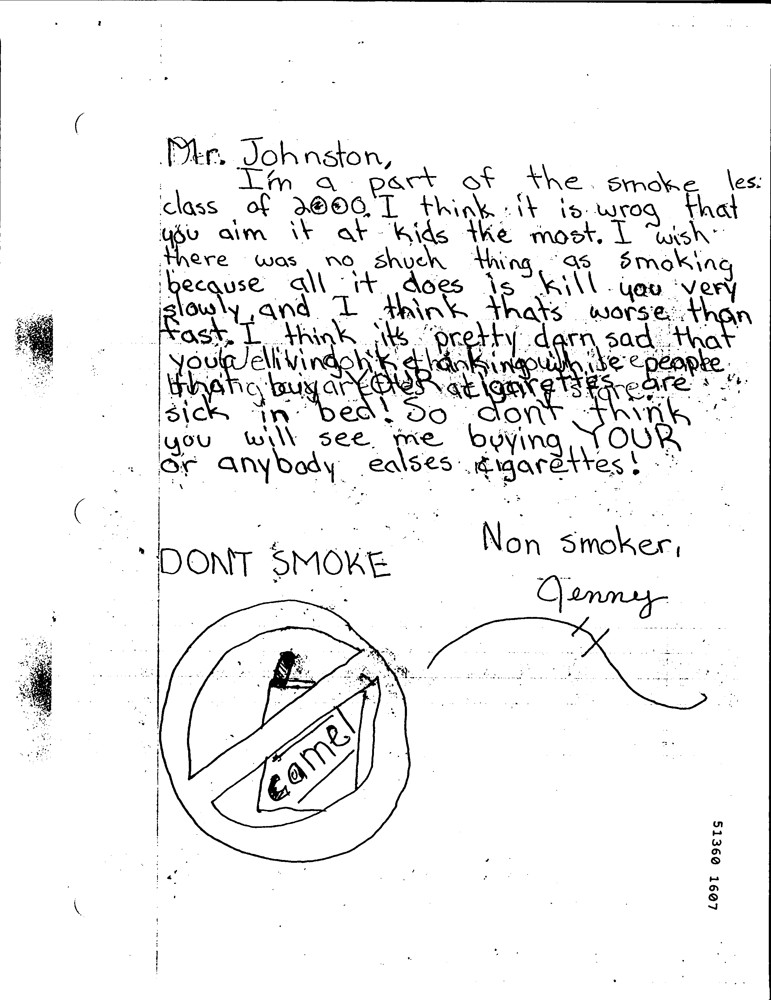 Mr. Johnston,
I'm a part of the smoke les:
class of 2000. I think it is wrog that
you aim it at kids the most. I wish
there was no shuch thing as smoking
because all it does is kill you very
slowly, and I think thats worse than
fast. I think it's pretty darn sad that
people
buy YOUR cigarettes are
sick in bed! So dont think
you will see me buying YOUR
or anybody ealses cigarettes!
Non smoker,
Jenny
DONT SMOKE
camel
51360 1607